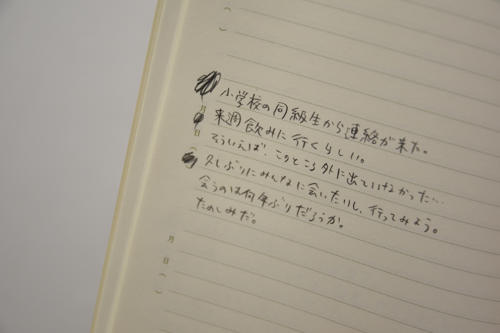 小学校の同級生から連絡が来た。
来週飲みに行くらしい。
そういえば、このところ外に出ていなかった…
久しぶりにみんなに会いたいし、行ってみよう。
会うのは何年ぶりだろうか。
たのしみだ。
月
日
月
日